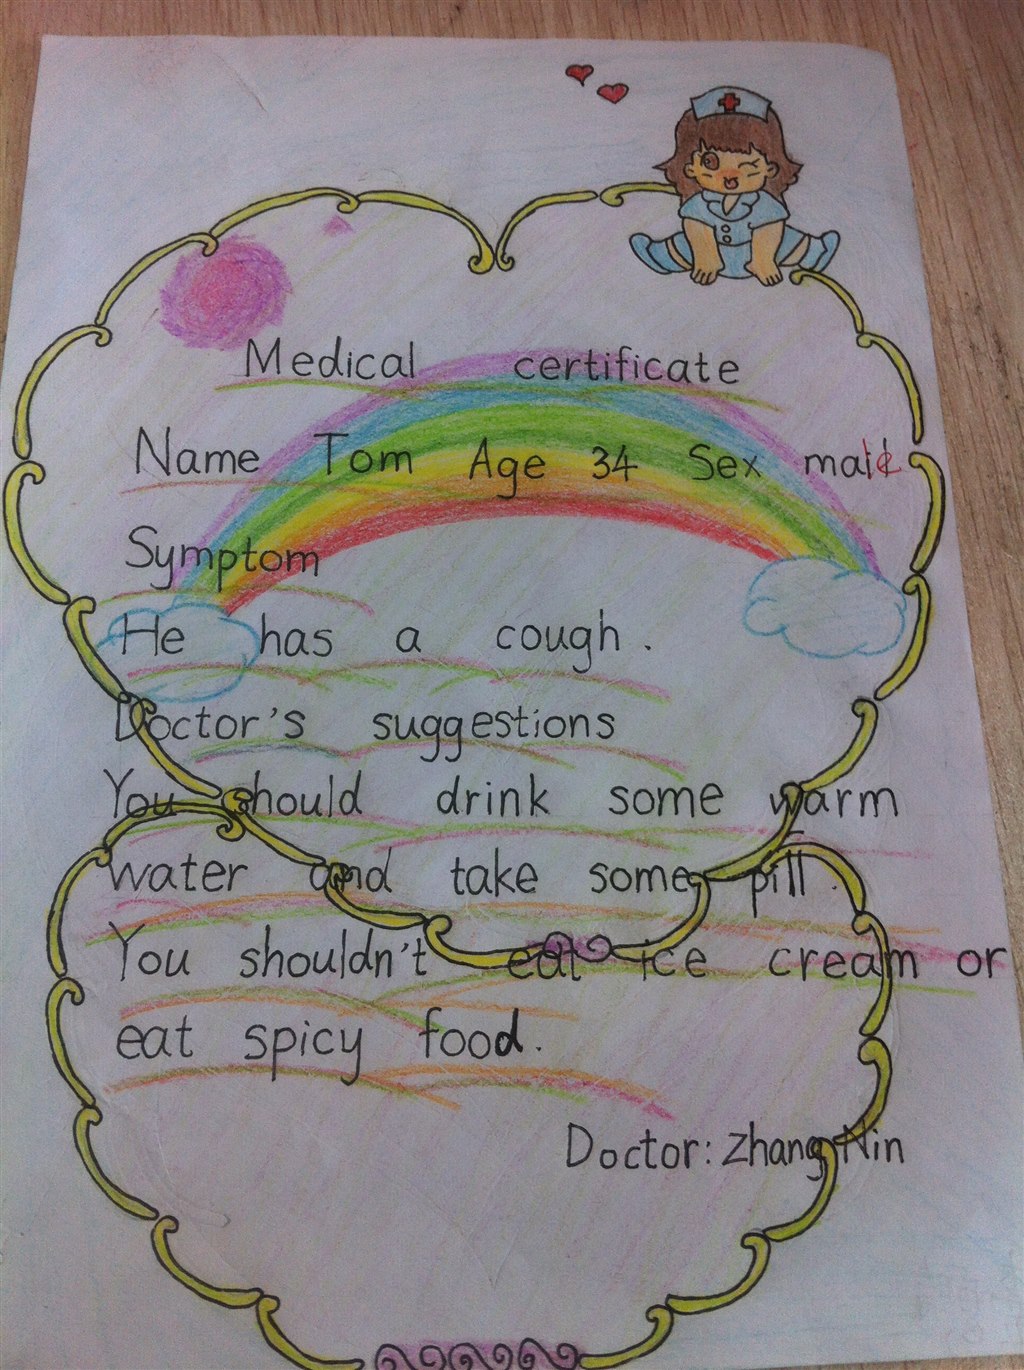 Medical certificate
Name Tom Age 34 Sex male
Symptom
He has a cough.
Doctor's suggestions
You should drink some warm
water and take some pill.
You shouldn't eat ice cream or
eat spicy food.
Doctor: Zhang Nin